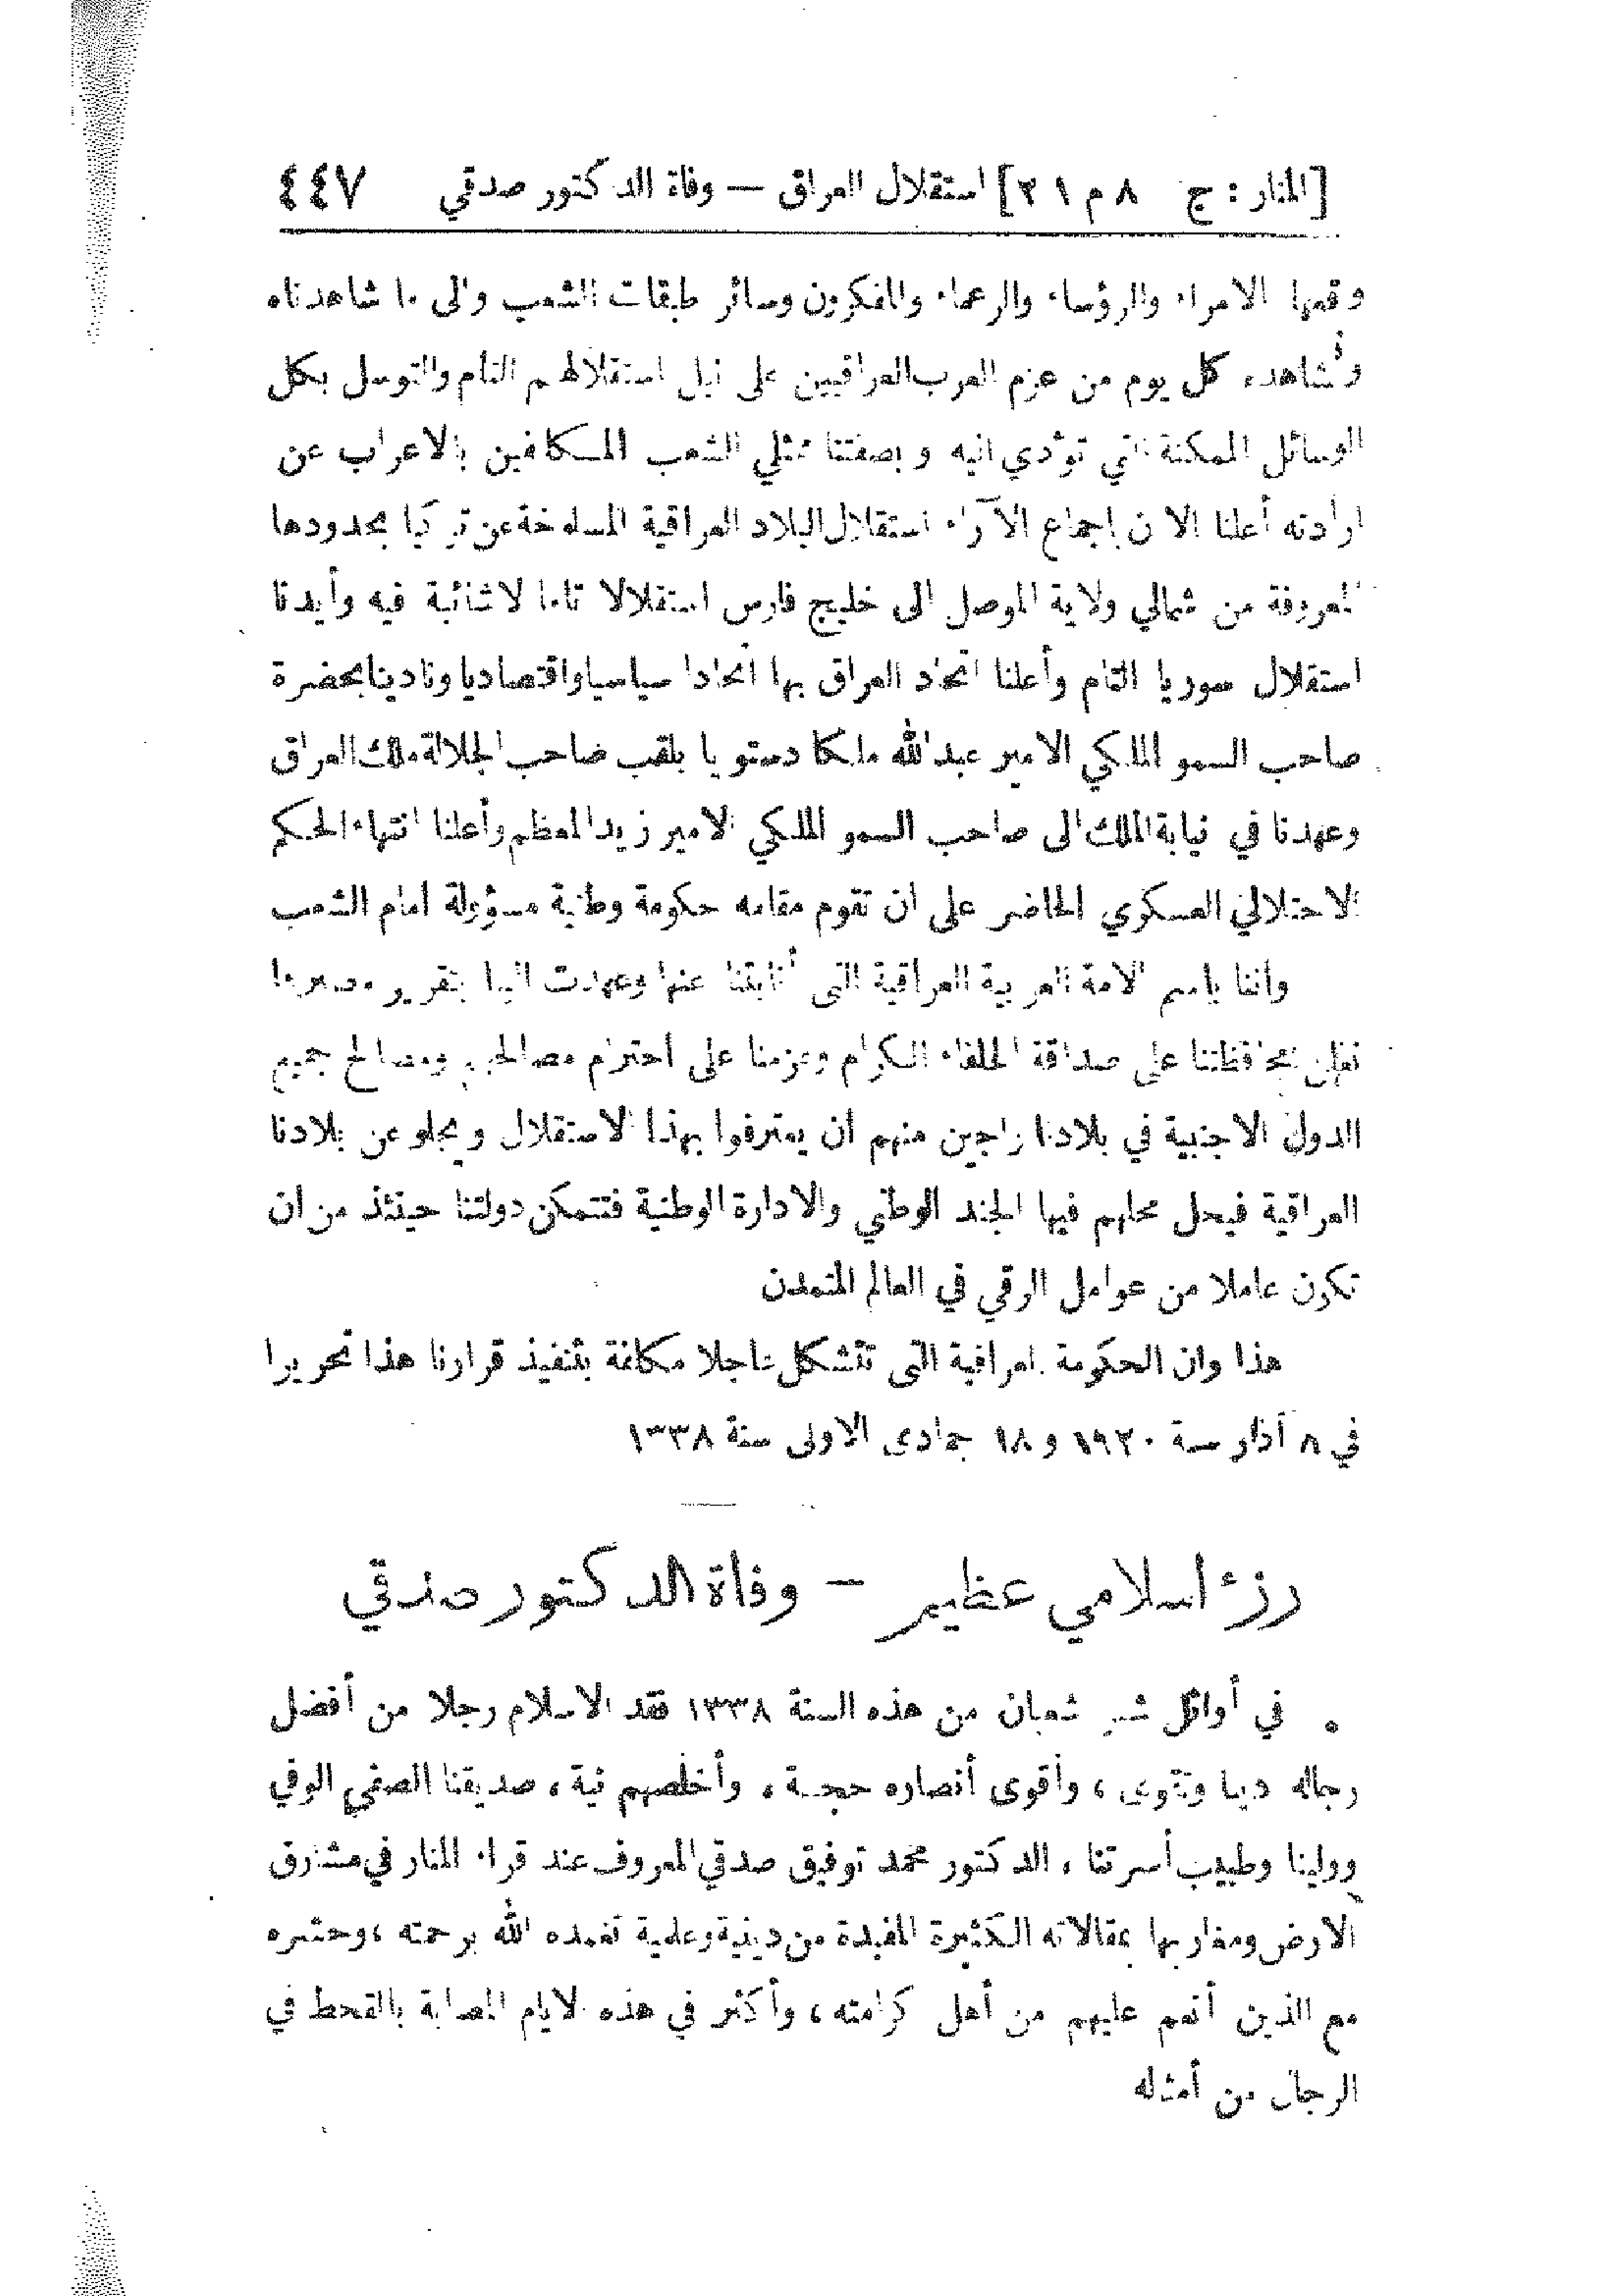 [المنار : ج ٨ م ٢١] استقلال العراق — وفاة الدكتور صدقي ٤٤٧
وقعها الامراء والرؤساء والزعماء والمفكرون وسائر طبقات الشعب والى ما شاهدناه
ونشاهده كل يوم من عزم العرب العراقيين على نيل استقلالهم التام والتوسل بكل
الوسائل الممكنة التي تؤدي اليه وبصفتنا ممثلي الشعب المكلفين بالاعراب عن
ارادته أعلنا الآن باجماع الآراء استقلال البلاد العراقية المسلوخة عن تركيا بحدودها
المعروفة من شمالي ولاية الموصل الى خليج فارس استقلالا تاما لا شائبة فيه وأيدنا
استقلال سوريا التام وأعلنا اتحاد العراق بها اتحادا سياسيا واقتصاديا ونادينا بحضرة
صاحب السمو الملكي الامير عبد الله ملكا دستوريا بلقب صاحب الجلالة ملك العراق
وعهدنا في نيابة الملك الى صاحب السمو الملكي الامير زيد المعظم وأعلنا انتهاء الحكم
الاحتلالي العسكري الحاضر على ان تقوم مقامه حكومة وطنية مسؤولة امام الشعب
واننا باسم الامة العربية العراقية التي أنابتنا عنها وعهدت الينا بتقرير مصيرها
نعلن محافظتنا على صداقة الحلفاء الكرام وعزمنا على احترام مصالحهم ومصالح جميع
الدول الاجنبية في بلادنا راجين منهم ان يعترفوا بهذا الاستقلال ويجلو عن بلادنا
العراقية فيحل محلهم فيها الجند الوطني والادارة الوطنية فتتمكن دولتنا حينئذ من ان
تكون عاملا من عوامل الرقي في العالم المتمدن
هذا وان الحكومة العراقية التي تتشكل عاجلا مكلفة بتنفيذ قرارنا هذا تحريرا
في ٨ آذار سنة ١٩٢٠ و ١٨ جمادى الاولى سنة ١٣٣٨
رزء اسلامي عظيم — وفاة الدكتور صدقي
في أوائل شهر شعبان من هذه السنة ١٣٣٨ فقد الاسلام رجلا من أفضل
رجاله دينا وتقوى ، وأقوى أنصاره حجة ، وأخلصهم نية ، صديقنا الصفي الوفي
وولينا وطبيب أسرتنا ، الدكتور محمد توفيق صدقي المعروف عند قراء المنار في مشارق
الارض ومغاربها بمقالاته الكثيرة المفيدة من دينية وعلمية تغمده الله برحمته ، وحشره
مع الذين أنعم عليهم من أهل كرامته ، وأكثر في هذه الايام المصابة بالقحط في
الرجال من أمثاله